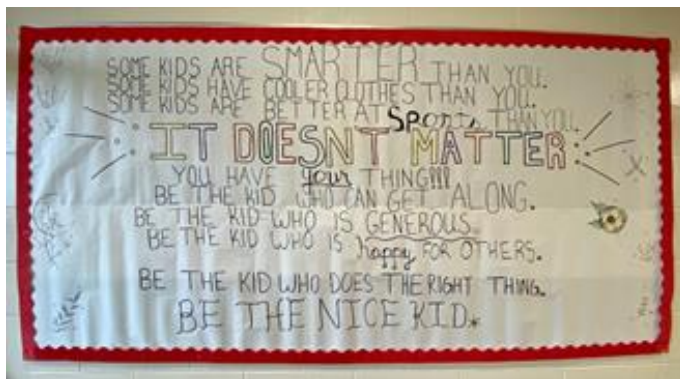 SOME KIDS ARE SMARTER THAN YOU.
SOME KIDS HAVE COOLER CLOTHES THAN YOU.
SOME KIDS ARE BETTER AT SPORTS THAN YOU.
IT DOESNT MATTER
YOU HAVE your THING!!!
BE THE KID WHO CAN GET ALONG.
BE THE KID WHO IS GENEROUS
BE THE KID WHO IS happy FOR OTHERS.
BE THE KID WHO DOES THE RIGHT THING.
BE THE NICE KID.